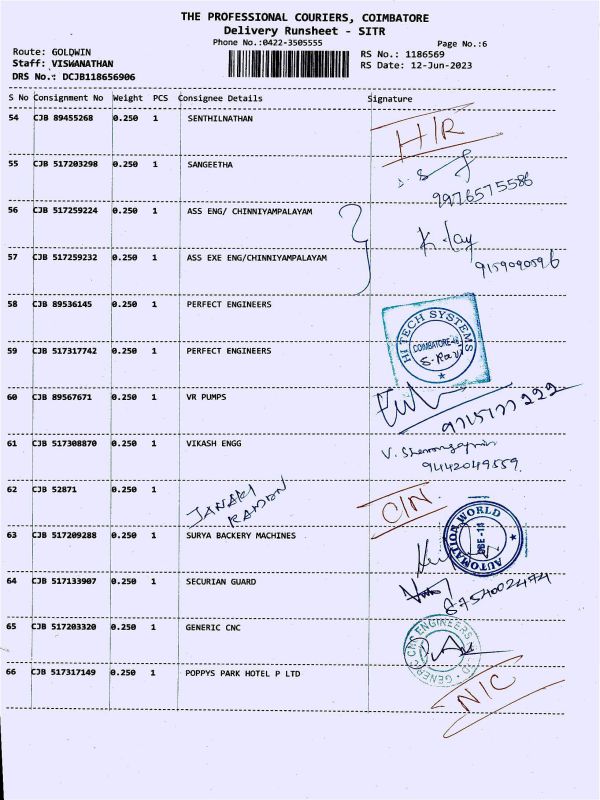 THE PROFESSIONAL COURIERS, COIMBATORE
Delivery Runsheet - SITR
Phone No.:0422-3505555
Page No.:6
Route: GOLDWIN
RS No.: 1186569
Staff: VISWANATHAN
RS Date: 12-Jun-2023
DRS No.: DCJB118656906
S No Consignment No Weight PCS Consignee Details Signature
54 CJB 89455268 0.250 1 SENTHILNATHAN H/R
55 CJB 517203298 0.250 1 SANGEETHA
9976575586
56 CJB 517259224 0.250 1 ASS ENG/ CHINNIYAMPALAYAM
57 CJB 517259232 0.250 1 ASS EXE ENG/CHINNIYAMPALAYAM 9159090596
58 CJB 89536145 0.250 1 PERFECT ENGINEERS
HI TECH SYSTEMS
COIMBATORE-48
S. Ravi
59 CJB 517317742 0.250 1 PERFECT ENGINEERS
60 CJB 89567671 0.250 1 VR PUMPS
9715177222
61 CJB 517308870 0.250 1 VIKASH ENGG
9442049559
62 CJB 52871 0.250 1 JANAKI RAMAN
63 CJB 517209288 0.250 1 SURYA BACKERY MACHINES
AUTOMATION WORLD
CBE-14
64 CJB 517133907 0.250 1 SECURIAN GUARD
8754002474
65 CJB 517203320 0.250 1 GENERIC CNC
GENERIC CNC ENGINEERS
66 CJB 517317149 0.250 1 POPPYS PARK HOTEL P LTD
N/C